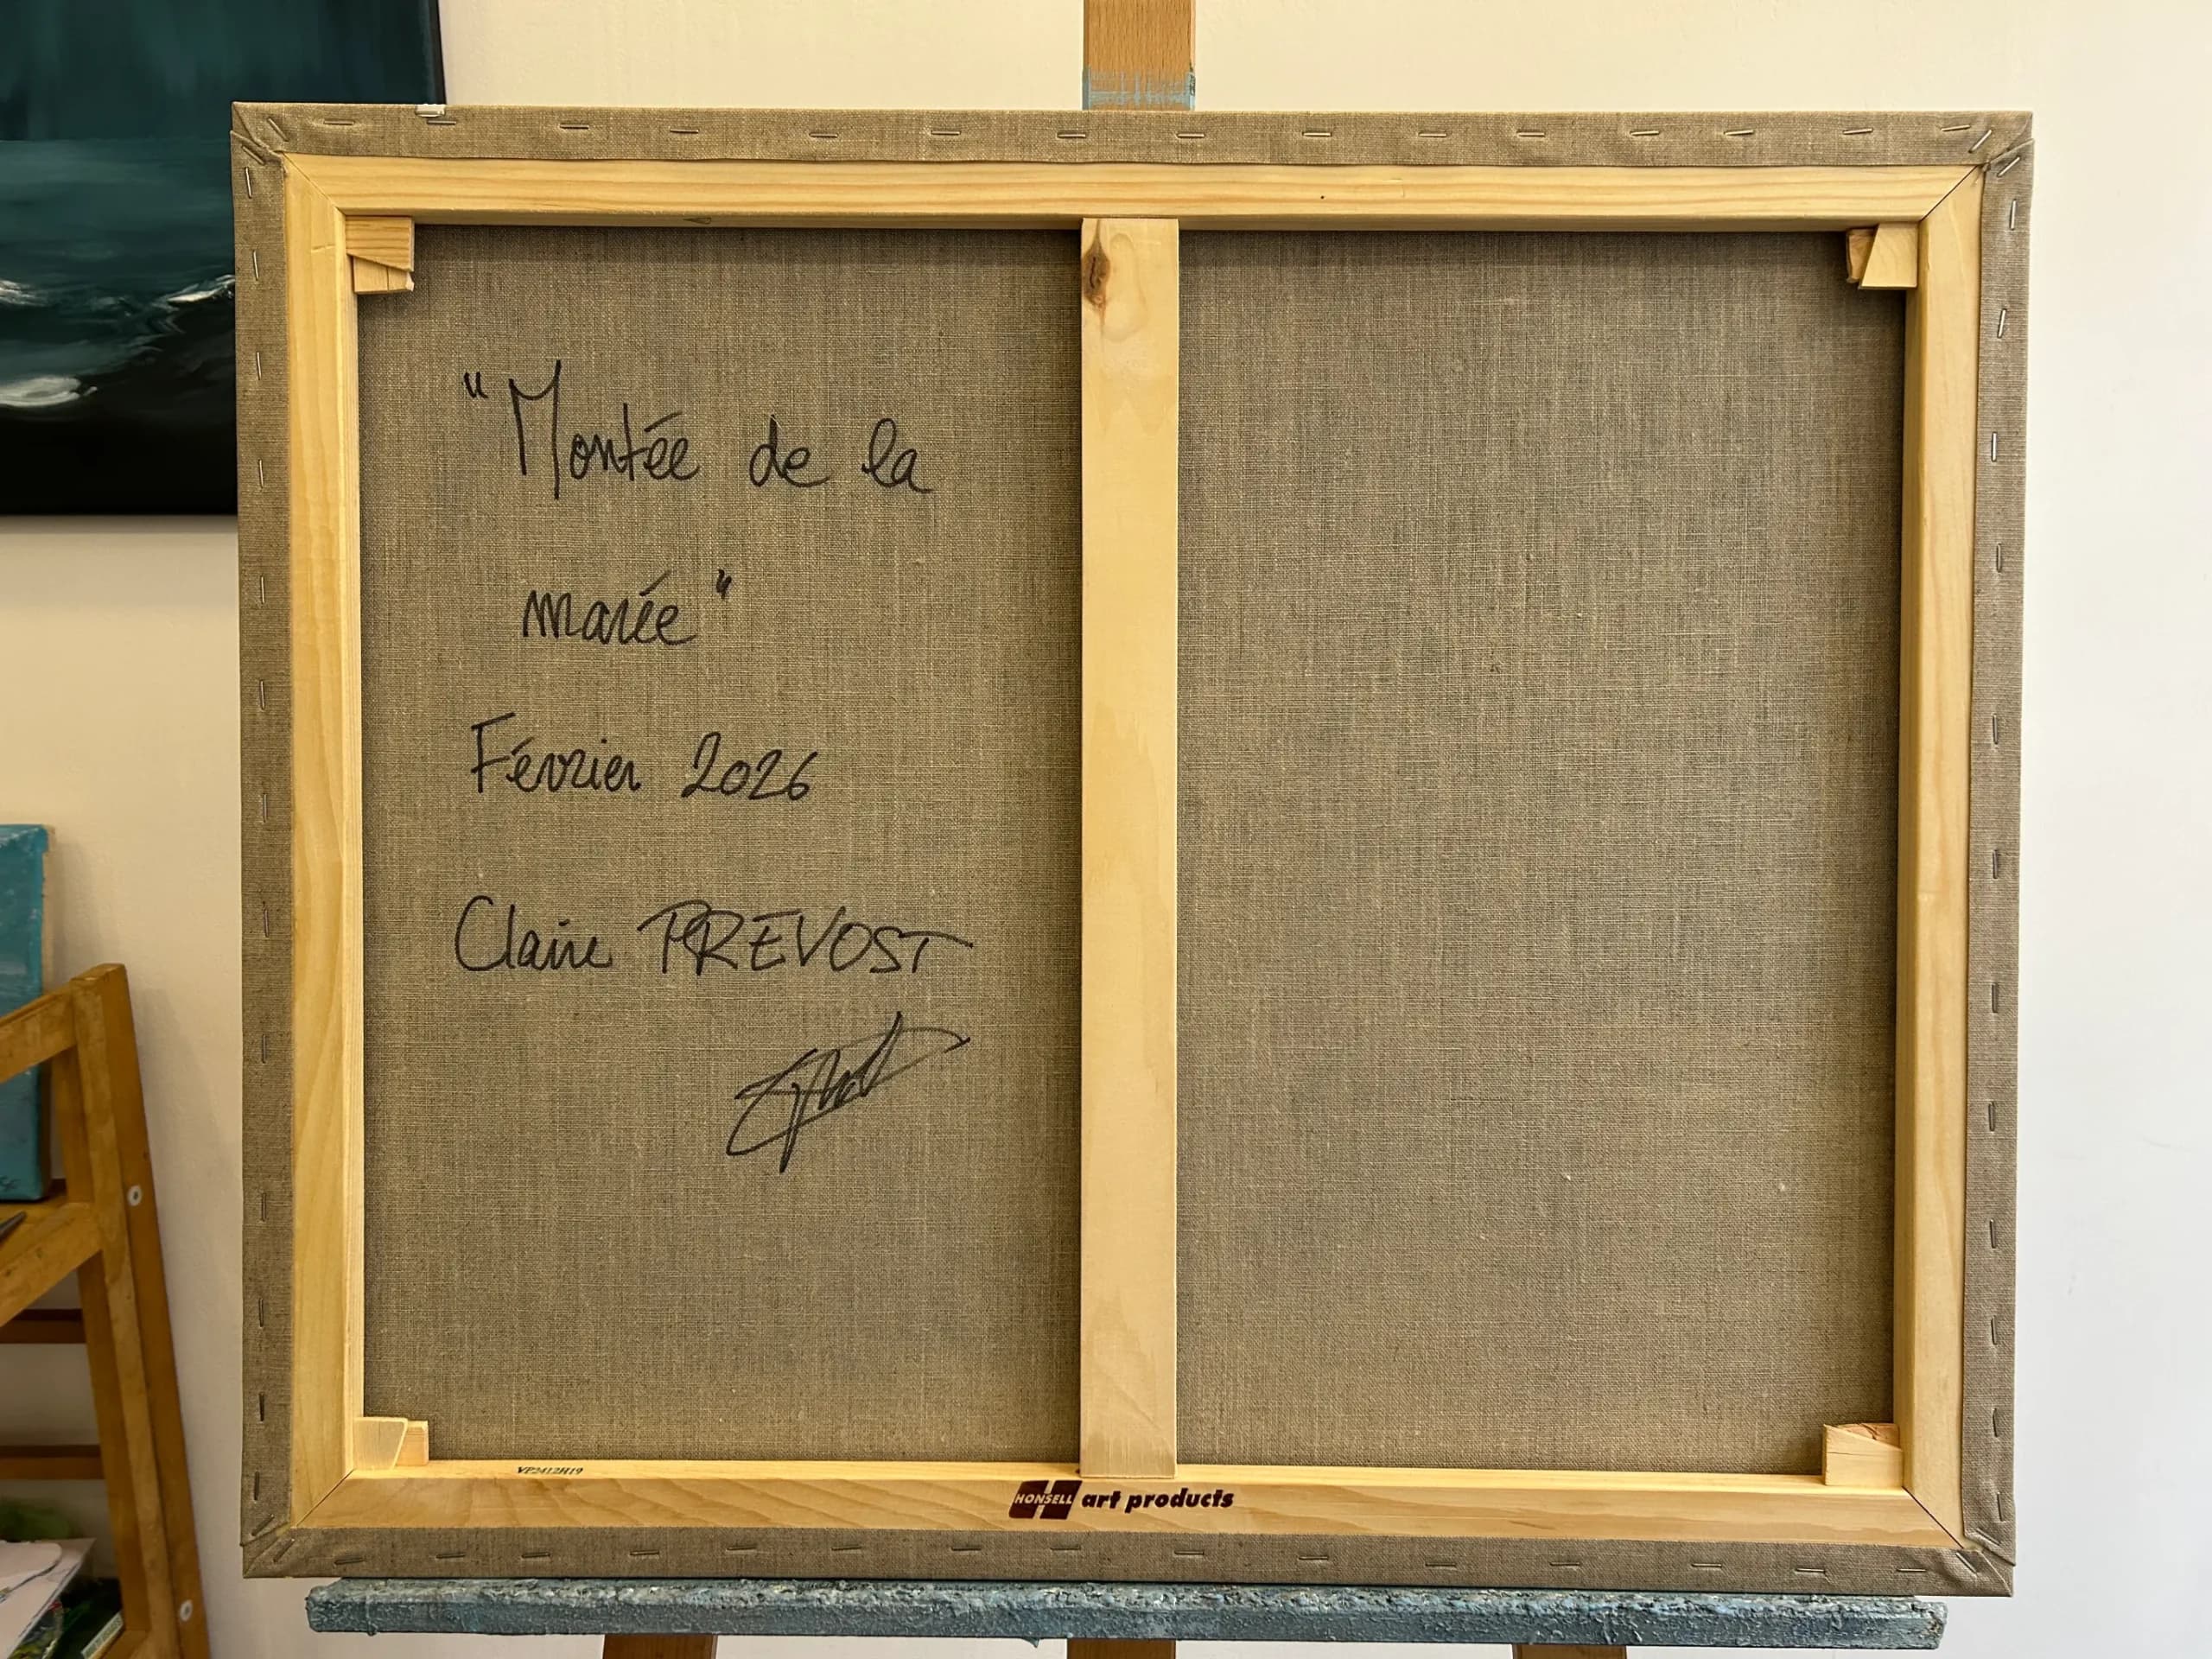 "Montée de la
marée"
Février 2026
Claire PREVOST
VP2412H19
HONSELL art products